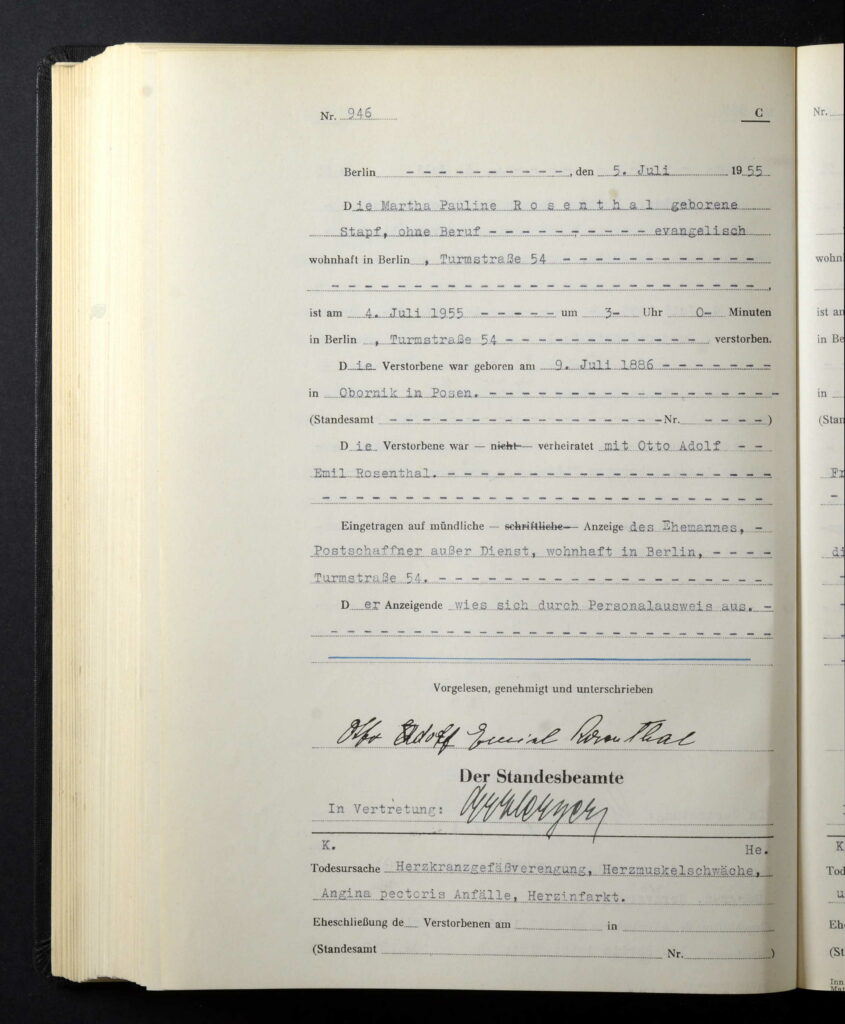 Nr. 946 C
Berlin - - - - - - - - - - -, den 5. Juli 1955
Die Martha Pauline R o s e n t h a l geborene
Stapf, ohne Beruf - - - - - - - - - - evangelisch
wohnhaft in Berlin , Turmstraße 54 - - - - - - - - - - - -
- - - - - - - - - - - - - - - - - - - - - - - - ,
ist am 4. Juli 1955 - - - - - um 3- Uhr 0- Minuten
in Berlin , Turmstraße 54 - - - - - - - - - - - - verstorben.
Die Verstorbene war geboren am 9. Juli 1886 - - - - - - -
in Obornik in Posen. - - - - - - - - - - - - - - - - - -
(Standesamt - - - - - - - - - - - - - - - - -Nr. - - - - )
Die Verstorbene war — nicht — verheiratet mit Otto Adolf - -
Emil Rosenthal. - - - - - - - - - - - - - - - - - - - -
- - - - - - - - - - - - - - - - - - - - - - - - - -
Eingetragen auf mündliche — schriftliche — Anzeige des Ehemannes, -
Postschaffner außer Dienst, wohnhaft in Berlin, - - - -
Turmstraße 54. - - - - - - - - - - - - - - - - - - - -
Der Anzeigende wies sich durch Personalausweis aus. -
- - - - - - - - - - - - - - - - - - - - - - - - - -
Vorgelesen, genehmigt und unterschrieben
Otto Adolf Emil Rosenthal
Der Standesbeamte
In Vertretung:
K. He.
Todesursache Herzkranzgefäßverengung, Herzmuskelschwäche,
Angina pectoris Anfälle, Herzinfarkt.
Eheschließung de Verstorbenen am in
(Standesamt Nr. )
Nr.
wohn
ist an
in Be
in
(Stan
Fr
di
K
Tod
u
Eh
(St
Inn